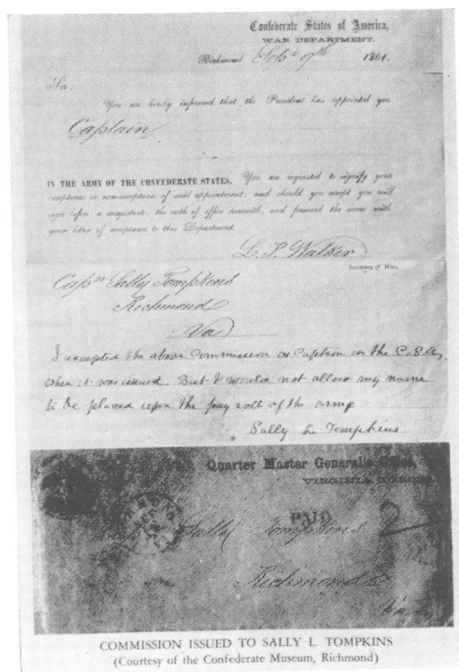 Confederate States of America,
WAR DEPARTMENT.
Richmond Sept 9th 1861.
Sir:
You are hereby informed that the President has appointed you
Captain
IN THE ARMY OF THE CONFEDERATE STATES. You are requested to signify your
acceptance or non-acceptance of said appointment: and should you accept you will
sign before a magistrate, the oath of office herewith, and forward the same with
your letter of acceptance to this Department.
L. P. Walker
Secretary of War.
Capn Sally Tompkins
Richmond
Va
I accepted the above commission as Captain in the C.S.A.
when it was issued. But I would not allow my name
to be placed upon the pay roll of the army
Sally L. Tompkins
Quarter Master General's Office,
VIRGINIA
PAID
Sally Tompkins
Richmond
Va
COMMISSION ISSUED TO SALLY L. TOMPKINS
(Courtesy of the Confederate Museum, Richmond)